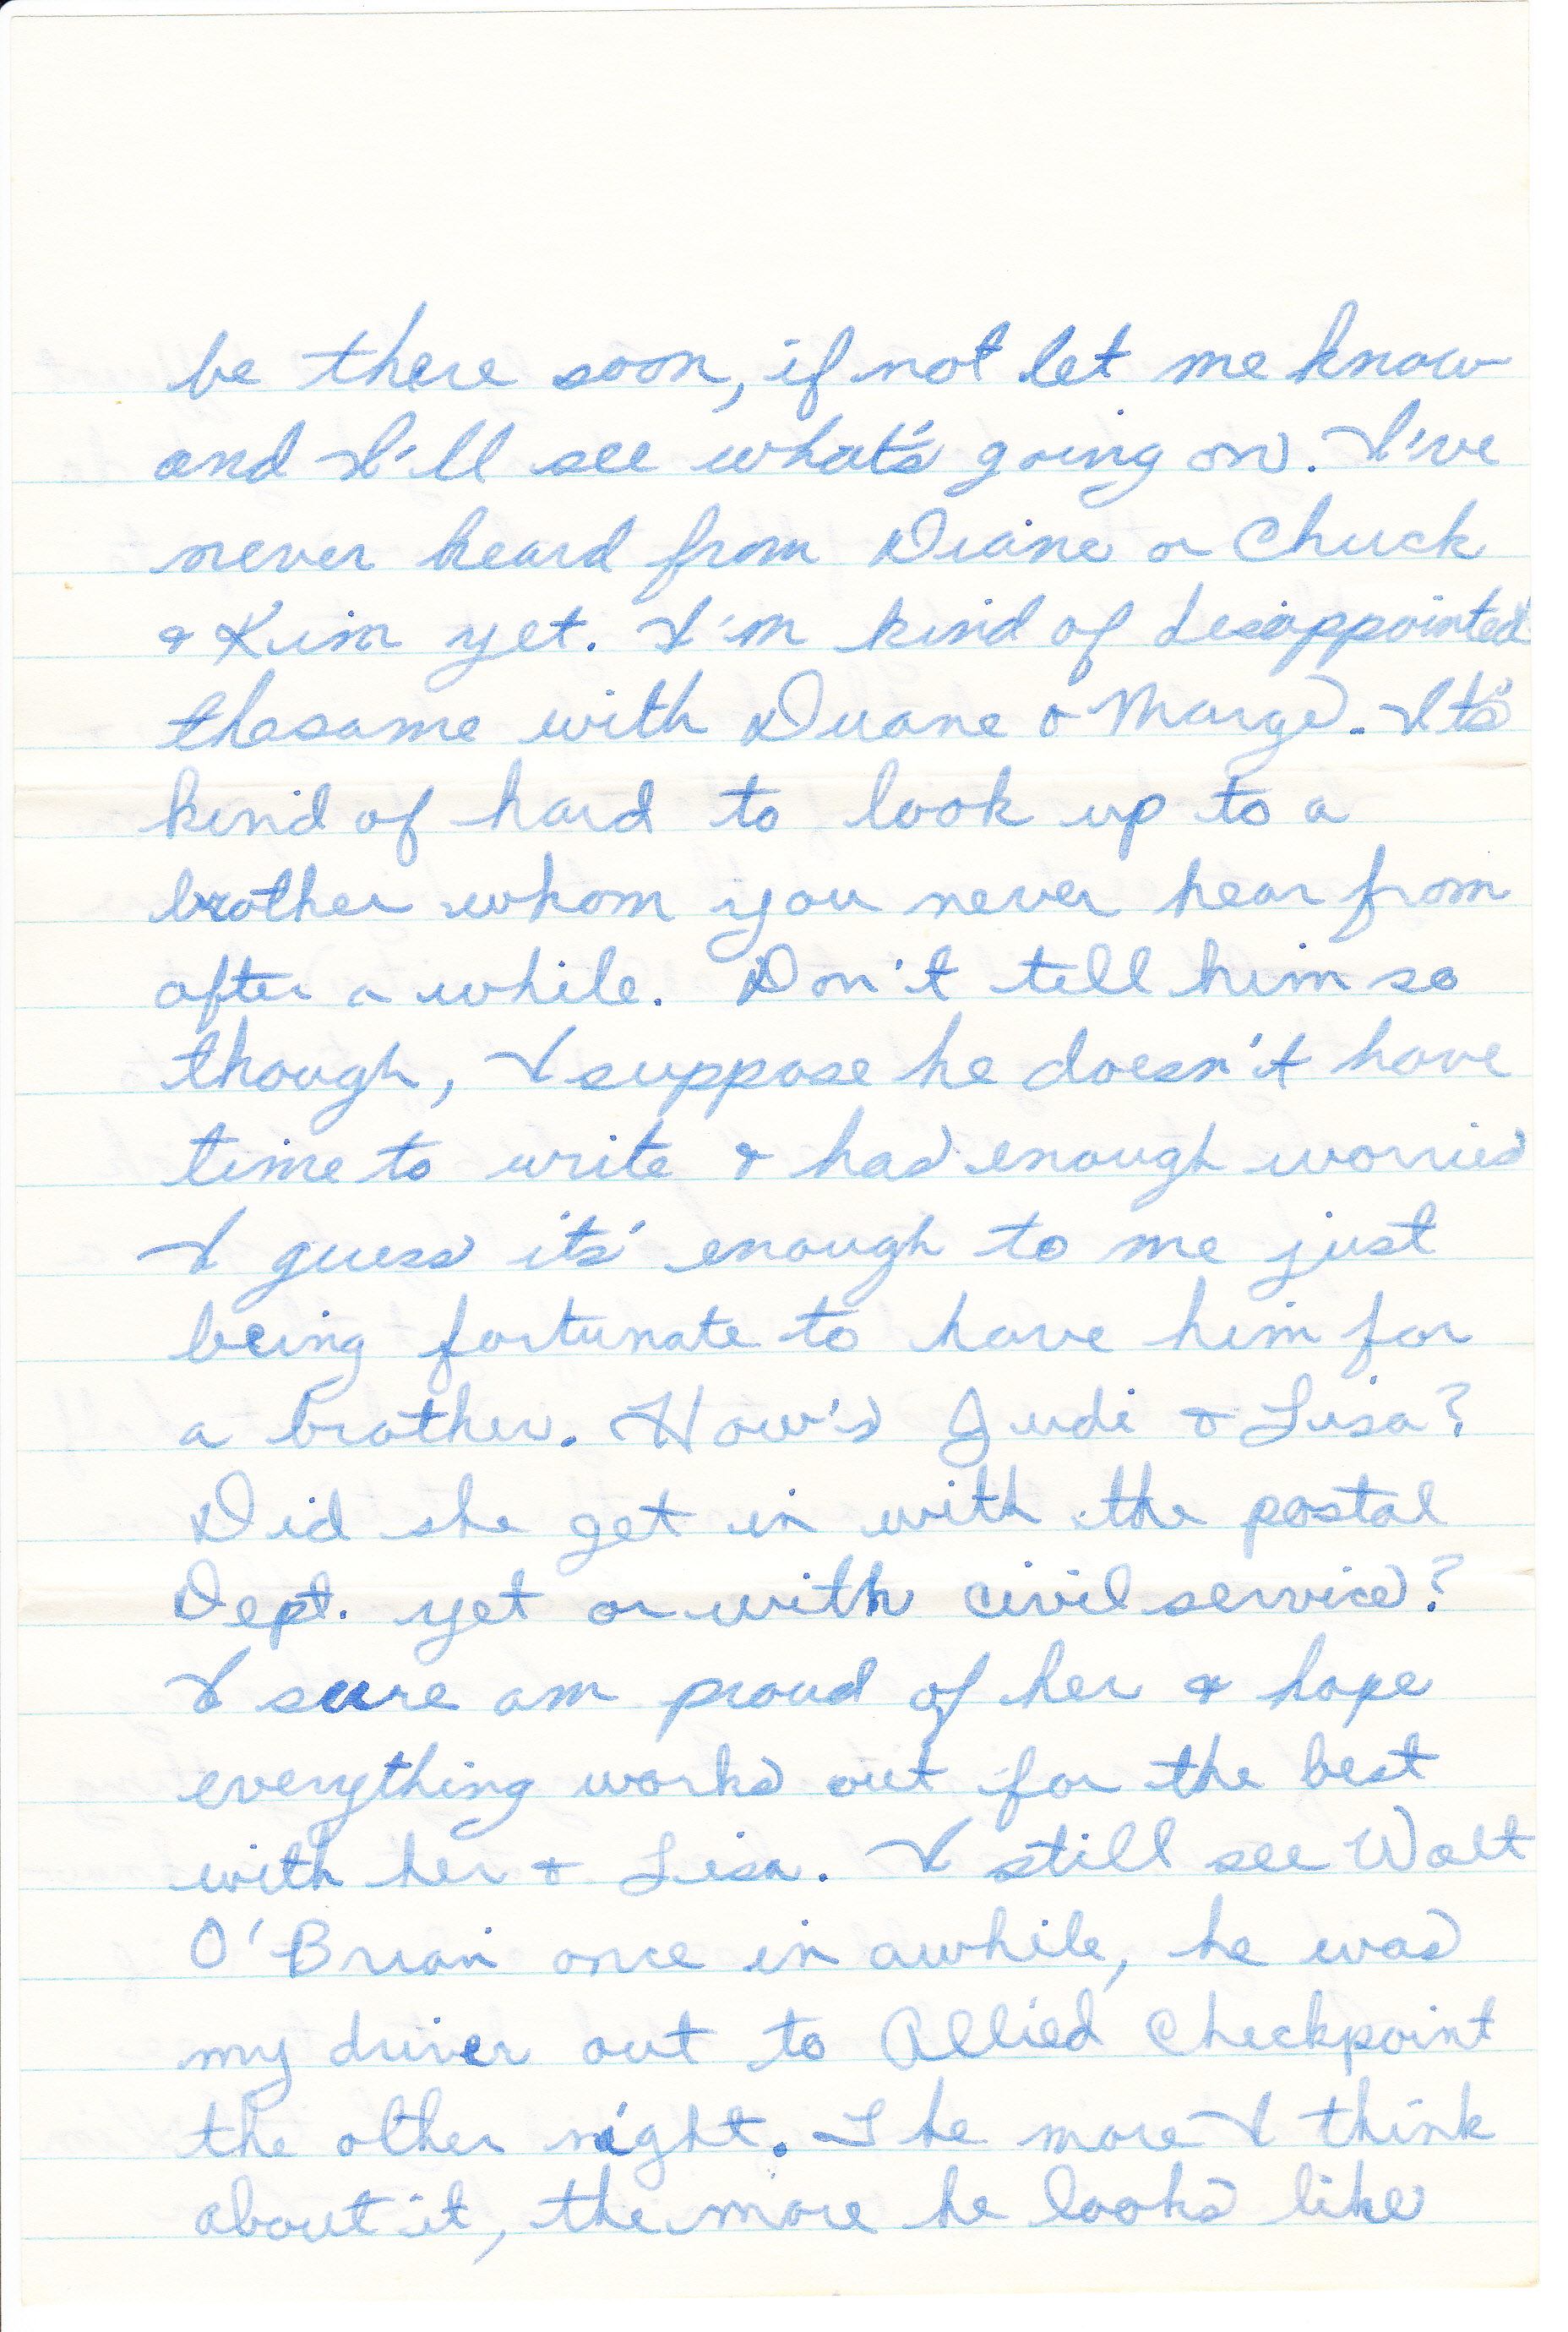 be there soon, if not let me know
and I'll see what's going on. I've
never heard from Diane or Chuck
& Kim yet. I'm kind of disappointed
the same with Duane & Marge. It's
kind of hard to look up to a
brother whom you never hear from
after a while. Don't tell him so
though, I suppose he doesn't have
time to write & has enough worries
I guess it's enough to me just
being fortunate to have him for
a brother. How's Judi & Lisa?
Did she get in with the postal
Dept. yet or with civil service?
I sure am proud of her & hope
everything works out for the best
with her & Lisa. I still see Walt
O'Brian once in awhile, he was
my driver out to Allied Checkpoint
the other night. The more I think
about it, the more he looks like